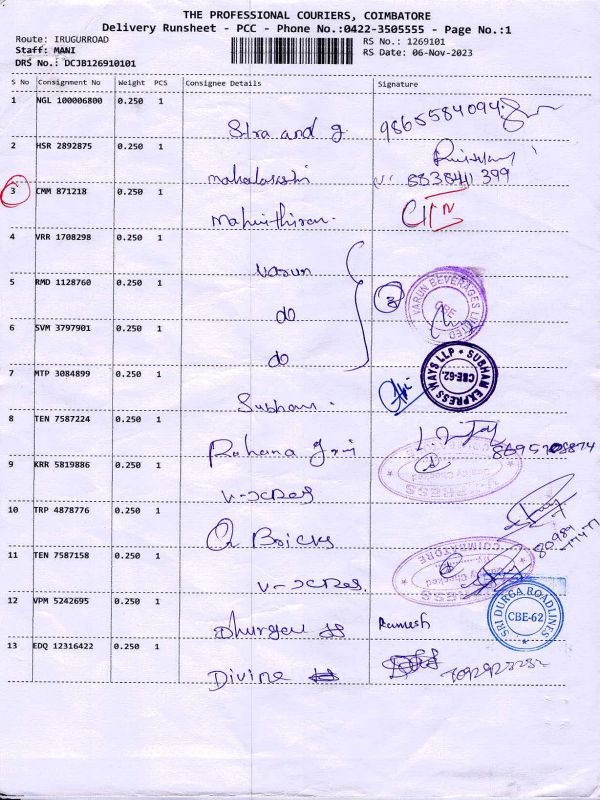 THE PROFESSIONAL COURIERS, COIMBATORE
Delivery Runsheet - PCC - Phone No.:0422-3505555 - Page No.:1
Route: IRUGURROAD
RS No.: 1269101
Staff: MANI
RS Date: 06-Nov-2023
DRS No.: DCJB126910101
S No Consignment No Weight PCS Consignee Details Signature
1 NGL 100006800 0.250 1
Stra and g 9865584094
2 HSR 2892875 0.250 1
mahalakshi 8838411399
3 CMM 871218 0.250 1
4 VRR 1708298 0.250 1
Varun
5 RMD 1128760 0.250 1
do 3
VARUN BEVERAGES LIMITED
CBE
6 SVM 3797901 0.250 1
do
7 MTP 3084899 0.250 1
Subham
SUBHAM EXPRESS WAYS LLP
CBE-62
8 TEN 7587224 0.250 1
9 KRR 5819886 0.250 1
V-XPRES
10 TRP 4878776 0.250 1
Q Bricks
11 TEN 7587158 0.250 1
V-XPRES
COIMBATORE
12 VPM 5242695 0.250 1
Ramesh
SRI DURGA ROADLINES
CBE-62
13 EDQ 12316422 0.250 1
Divine